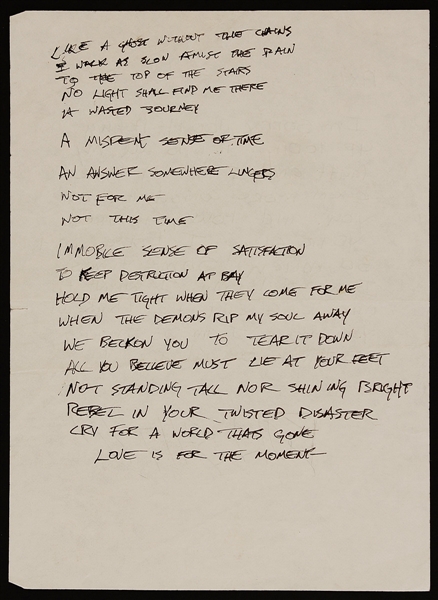 LIKE A GHOST WITHOUT THE CHAINS
I WALK AS SLOW AMIST THE RAIN
TO THE TOP OF THE STAIRS
NO LIGHT SHALL FIND ME THERE
A WASTED JOURNEY
A MISPENT SENSE OF TIME
AN ANSWER SOMEWHERE LINGERS
NOT FOR ME
NOT THIS TIME
IMMOBILE SENSE OF SATISFACTION
TO KEEP DESTRUCTION AT BAY
HOLD ME TIGHT WHEN THEY COME FOR ME
WHEN THE DEMONS RIP MY SOUL AWAY
WE BECKON YOU TO TEAR IT DOWN
ALL YOU BELIEVE MUST LIE AT YOUR FEET
NOT STANDING TALL NOR SHINING BRIGHT
REBEL IN YOUR TWISTED DISASTER
CRY FOR A WORLD THATS GONE
LOVE IS FOR THE MOMENT